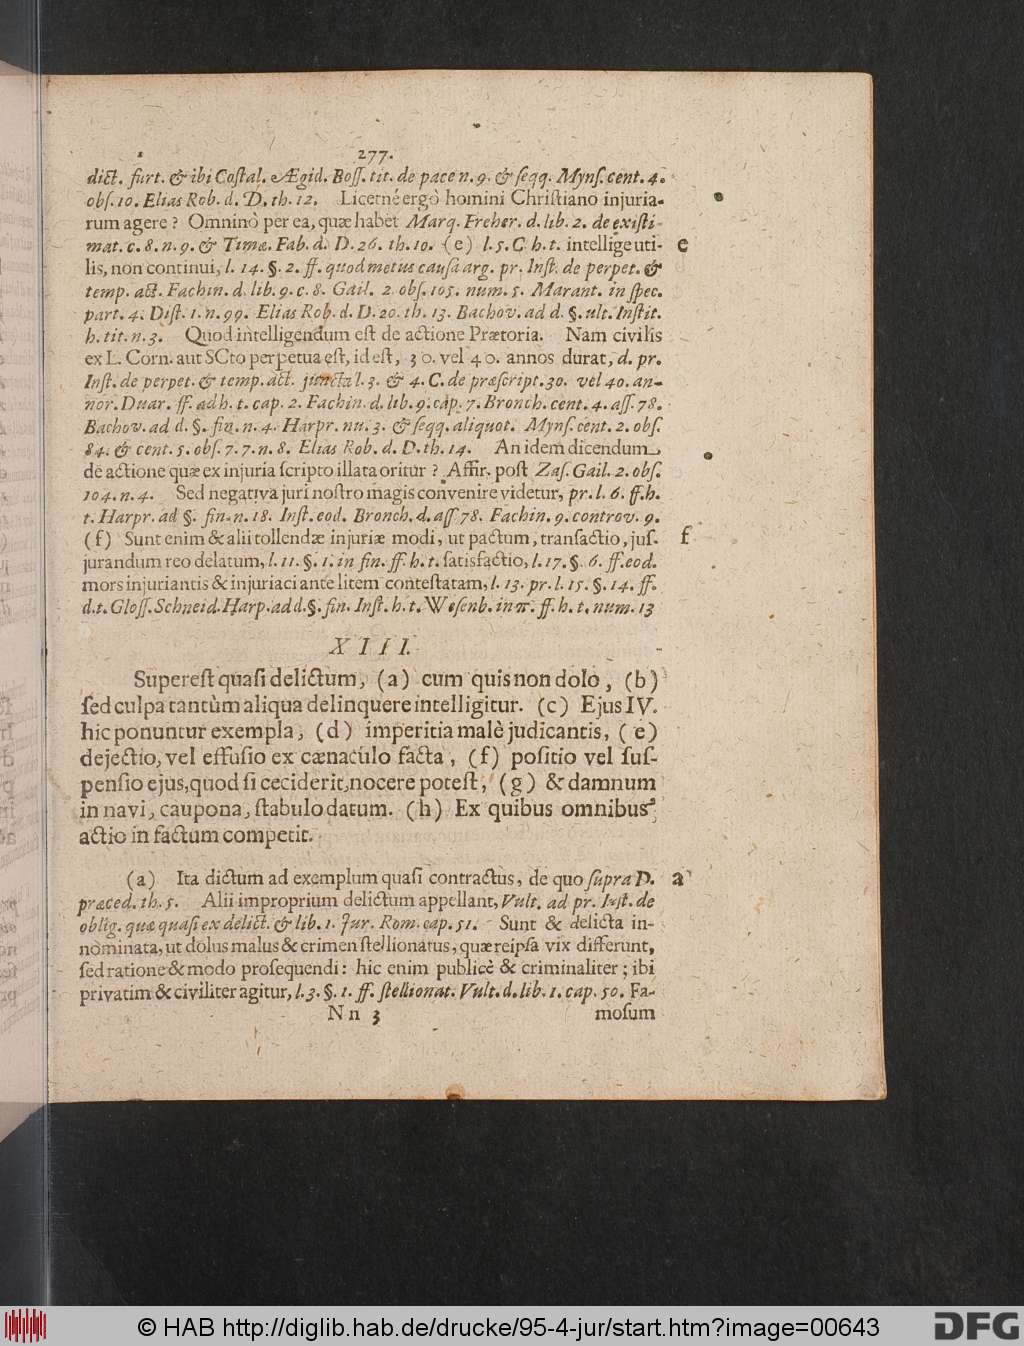 277.
dict. furt. & ibi Costal. Ægid. Boss. tit. de pace n. 9. & seqq. Myns. cent. 4.
obs. 10. Elias Rob. d. D. th. 12. Licetné ergò homini Christiano injuria-
rum agere? Omninò per ea, quæ habet Marq. Freher. d. lib. 2. de existi-
mat. c. 8. n. 9. & Timæ. Fab. d. D. 26. th. 10. (e) l. 5. C h. t. intellige uti- e
lis, non continui, l. 14. §. 2. ff. quod metus causa arg. pr. Inst. de perpet. &
temp. act. Fachin. d. lib. 9. c. 8. Gail. 2. obs. 105. num. 5. Marant. in spec.
part. 4. Dist. 1. n. 99. Elias Rob. d. D. 20. th. 13. Bachov. ad d. §. ult. Instit.
h. tit. n. 3. Quod intelligendum est de actione Prætoria. Nam civilis
ex L. Corn. aut SCto perpetua est, id est, 30. vel 40. annos durat, d. pr.
Inst. de perpet. & temp. act. juncta l. 3. & 4. C. de præscript. 30. vel 40. an-
nor. Duar. ff. ad h. t. cap. 2. Fachin. d. lib. 9. cap. 7. Bronch. cent. 4. ass. 78.
Bachov. ad d. §. fin. n. 4. Harpr. nu. 3. & seqq. aliquot. Myns. cent. 2. obs.
84. & cent. 5. obs. 7. 7. n. 8. Elias Rob. d. D. th. 14. An idem dicendum
de actione quæ ex injuria scripto illata oritur? Affir. post Zas. Gail. 2. obs.
104. n. 4. Sed negativa juri nostro magis convenire videtur, pr. l. 6. ff. h.
t. Harpr. ad §. fin. n. 18. Inst. eod. Bronch. d. ass 78. Fachin. 9. controv. 9.
(f) Sunt enim & alii tollendæ injuriæ modi, ut pactum, transactio, jus- f
jurandum reo delatum, l. 11. §. 1. in fin. ff. h. t. satisfactio, l. 17. §. 6. ff. eod.
mors injuriantis & injuriaci ante litem contestatam, l. 13. pr. l. 15. §. 14. ff.
d. t. Gloss. Schneid. Harp. ad d. §. fin. Inst. h. t. Wesenb. in π. ff. h. t. num. 13
XIII.
Superest quasi delictum, (a) cum quis non dolo, (b)
sed culpa tantùm aliqua delinquere intelligitur. (c) Ejus IV.
hic ponuntur exempla, (d) imperitia malè judicantis, (e)
dejectio, vel effusio ex cænaculo facta, (f) positio vel sus-
pensio ejus, quod si ceciderit, nocere potest, (g) & damnum
in navi, caupona, stabulo datum. (h) Ex quibus omnibus
actio in factum competit.
(a) Ita dictum ad exemplum quasi contractus, de quo supra D. a
præced. th. 5. Alii improprium delictum appellant, Vult. ad pr. Inst. de
oblig. quæ quasi ex delict. & lib. 1. Jur. Rom. cap. 51. Sunt & delicta in-
nominata, ut dolus malus & crimen stellionatus, quæ reipsa vix differunt,
sed ratione & modo prosequendi: hic enim publicè & criminaliter; ibi
privatim & civiliter agitur, l. 3. §. 1. ff. stellionat. Vult. d. lib. 1. cap. 50. Fa-
Nn 3 mosum
© HAB http://diglib.hab.de/drucke/95-4-jur/start.htm?image=00643
DFG